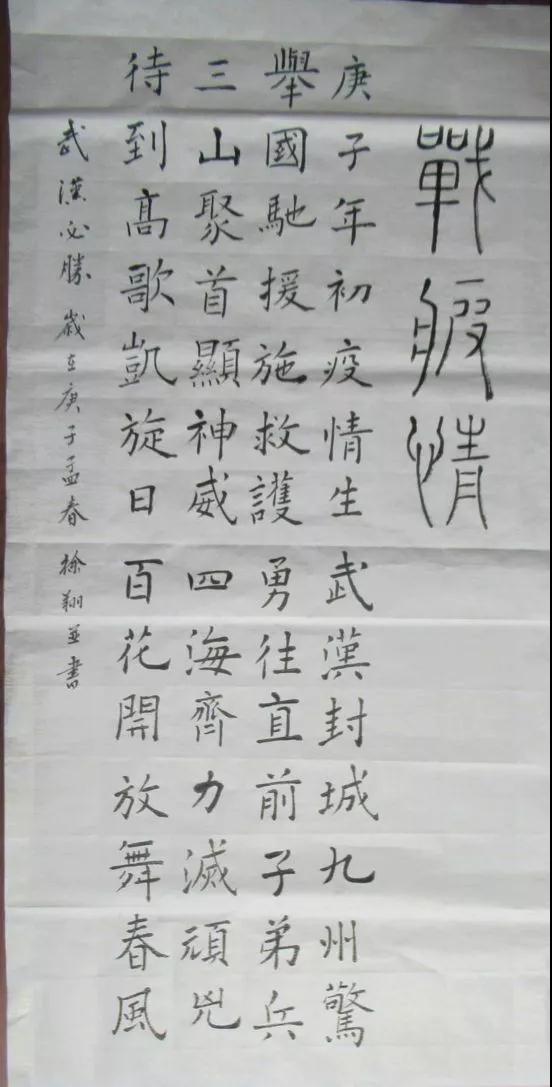 戰疫情
庚子年初疫情生武漢封城九州驚
舉國馳援施救護勇往直前子弟兵
三山聚首顯神威四海齊力滅頑兇
待到高歌凱旋日百花開放舞春風
武漢必勝 歲在庚子孟春 徐翔並書